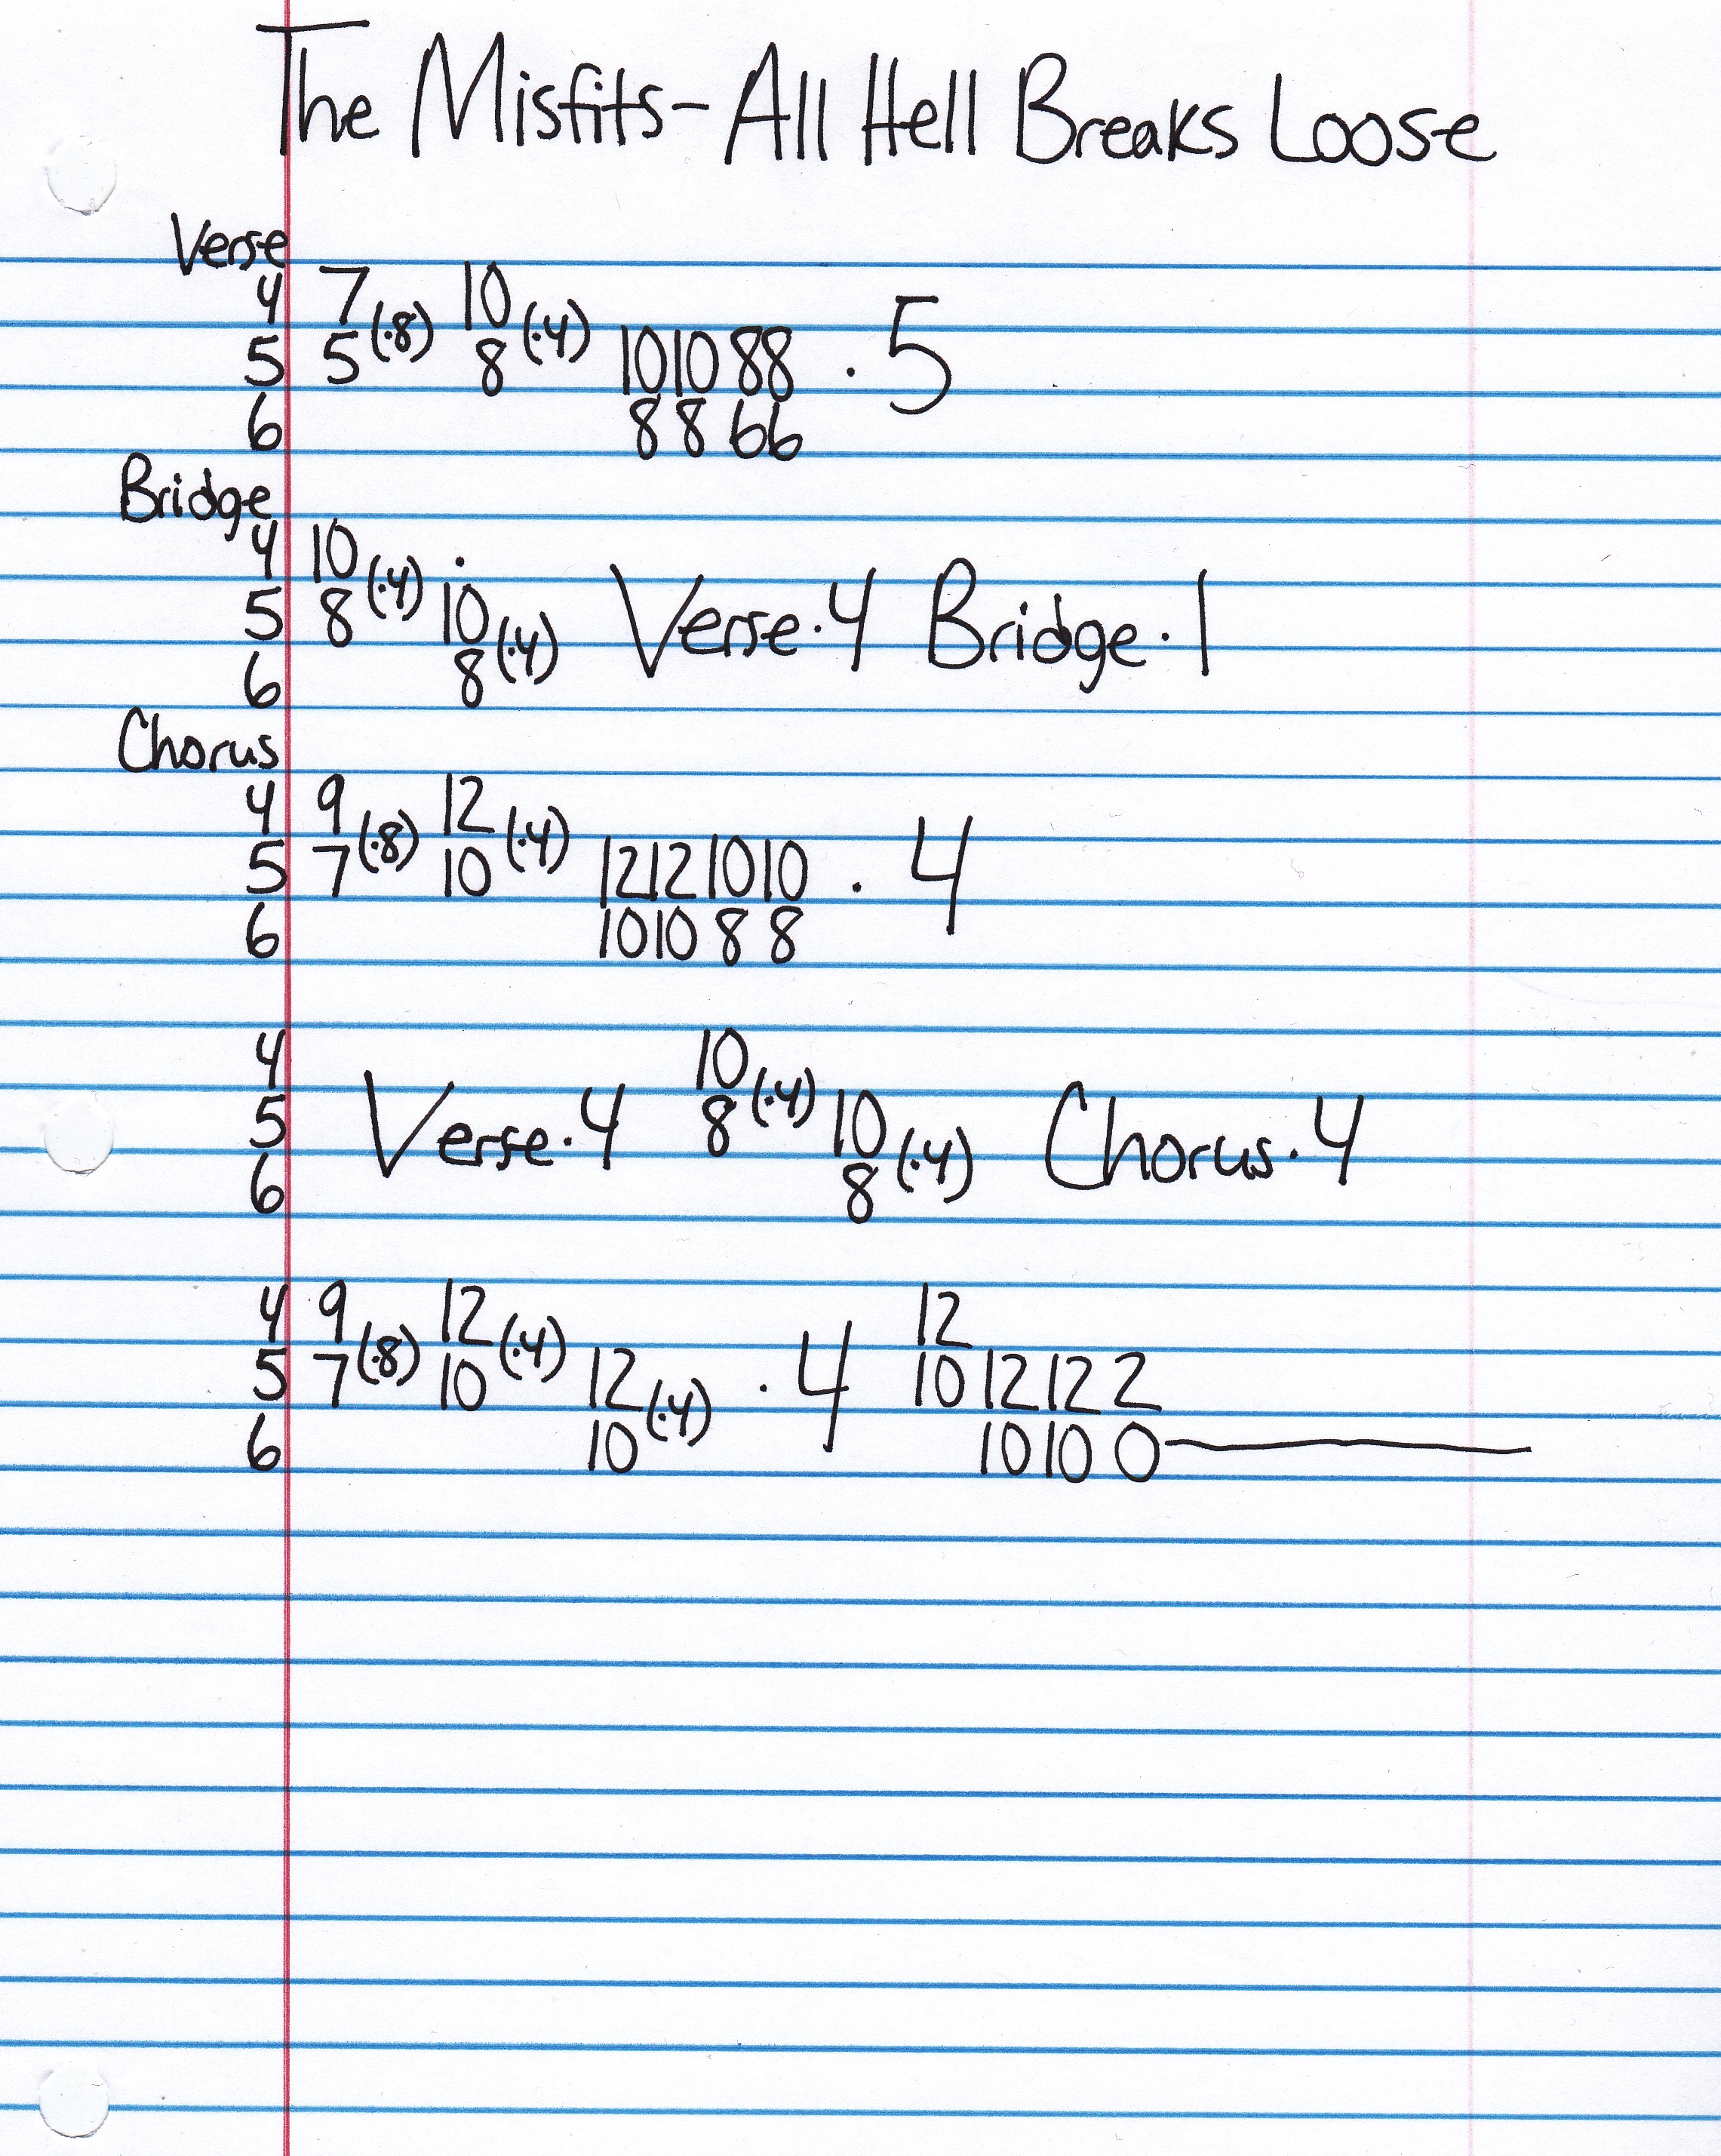 The Misfits-All Hell Breaks Loose
Verse
4 7 (·8) 10 (·4)
5 5 8 10 10 8 8 · 5
6 8 8 6 6
Bridge
4 10 (·4) ·
5 8 10 (·4) Verse·4 Bridge·1
6 8
Chorus
4 9 (·8) 12 (·4)
5 7 10 12 12 10 10 · 4
6 10 10 8 8
4 10 (·4)
5 Verse·4 8 10 (·4) Chorus·4
6 8
4 9 (·8) 12 (·4) 12
5 7 10 12 (·4) · 4 10 12 12 2
6 10 10 10 0